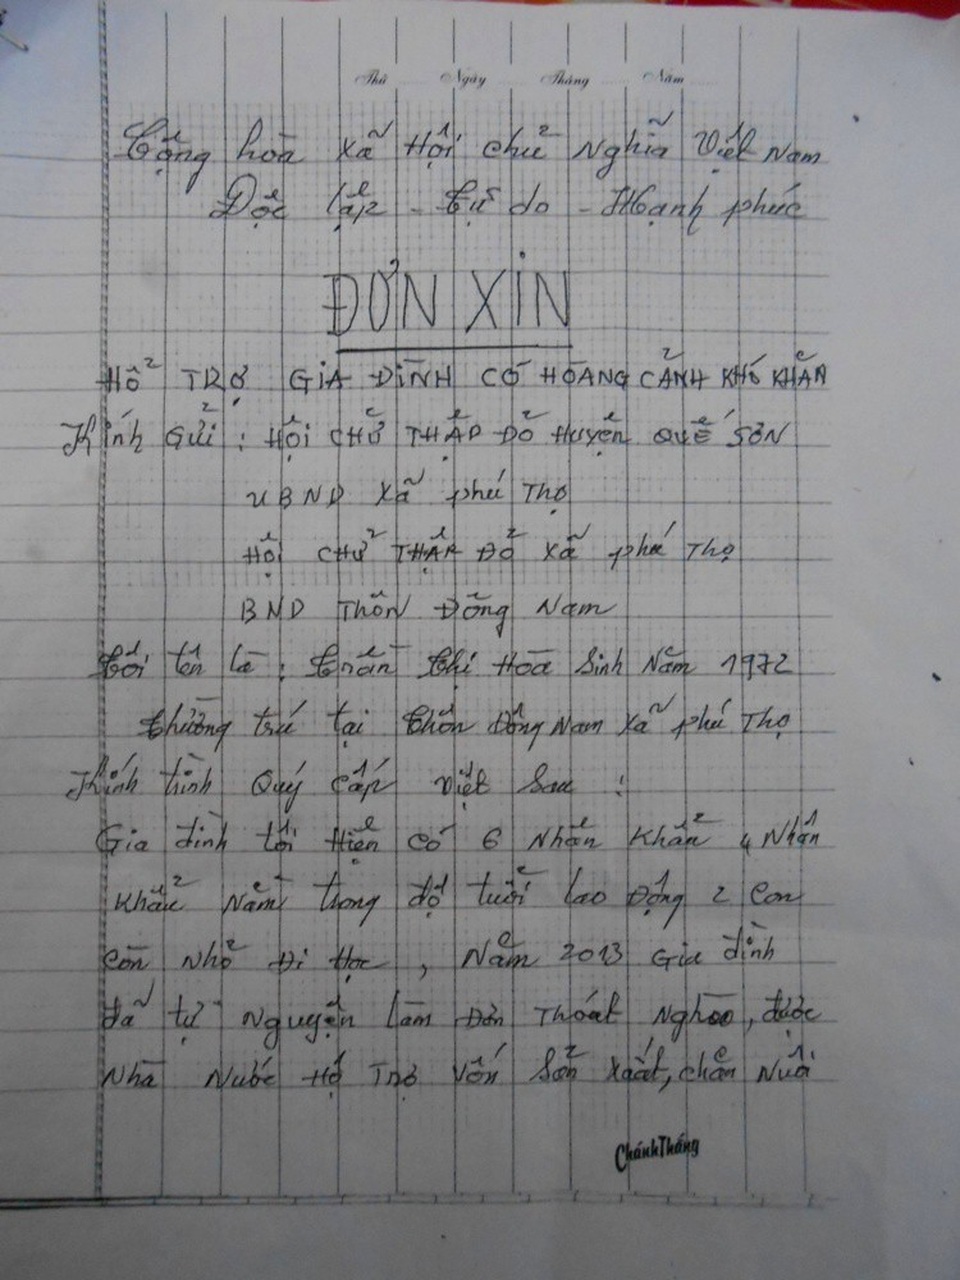 Thứ Ngày Tháng Năm
Cộng hòa xã Hội chủ nghĩa Việt Nam
Độc lập - Tự do - Hạnh phúc
ĐƠN XIN
HỔ TRỢ GIA ĐÌNH CÓ HOÀNG CẢNH KHÓ KHĂN
Kính Gửi : HỘI CHỮ THẬP ĐỎ Huyện QUẾ SƠN
UBND Xã phú Thọ
HỘI CHỮ THẬP ĐỎ xã phú Thọ
BND Thôn Đông Nam
Tôi tên là : Trần Thị Hoà Sinh Năm 1972
Thường trú tại Thôn Đông Nam xã phú Thọ
Kính trình Quý Cấp việt Sau :
Gia đình tôi Hiện có 6 Nhân Khẩu 4 Nhân
Khẩu Nằm trong độ tuổi lao Động 2 Con
Còn Nhỏ Đi Học , Năm 2013 Gia đình
đã tự Nguyện làm Đơn Thoát Nghèo, được
Nhà Nước Hổ Trợ Vốn Sản Xuất, chăn Nuôi
ChánhTháng